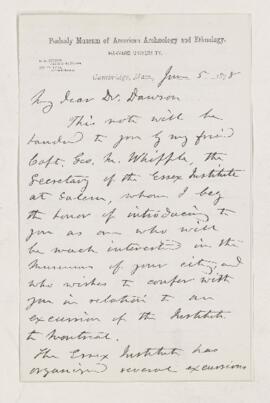 Peabody Museum of American Archaeology and Ethnology,
HARVARD UNIVERSITY.
Cambridge, Mass., June 5 1878
My dear Dr. Dawson
This note will be
handed to you by my friend
Capt. Geo. M. Whipple, the
Secretary of the Essex Institute
at Salem, whom I beg
the honor of introducing to
you as one who will
be much interested in the
Museums of your city, and
who wishes to confer with
you in relation to an
excursion of the Institute
to Montreal.
The Essex Institute has
organized several excursions